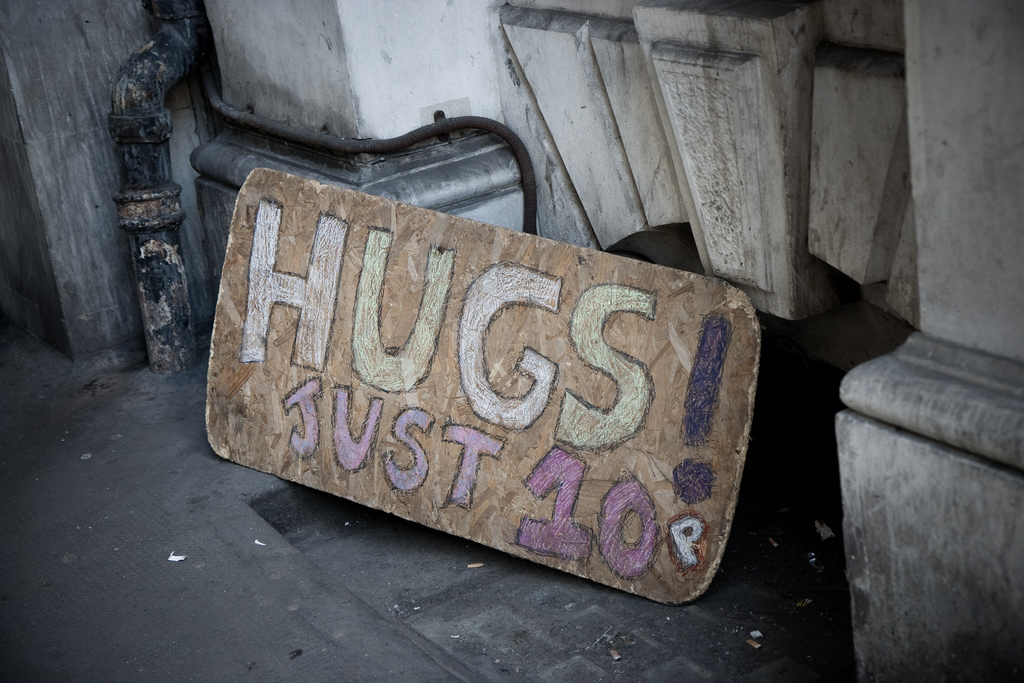 HUGS!
JUST 10P